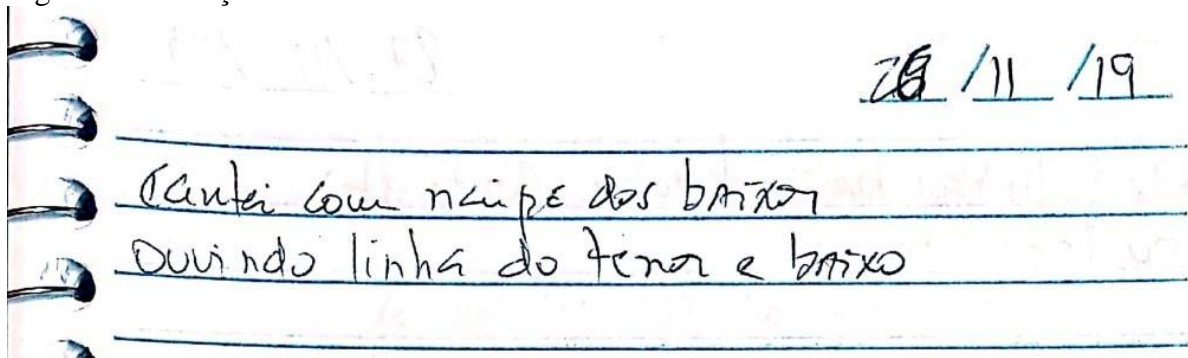 /11/19
Cantei com naipe dos baixos
Ouvindo linha do tenor e baixo